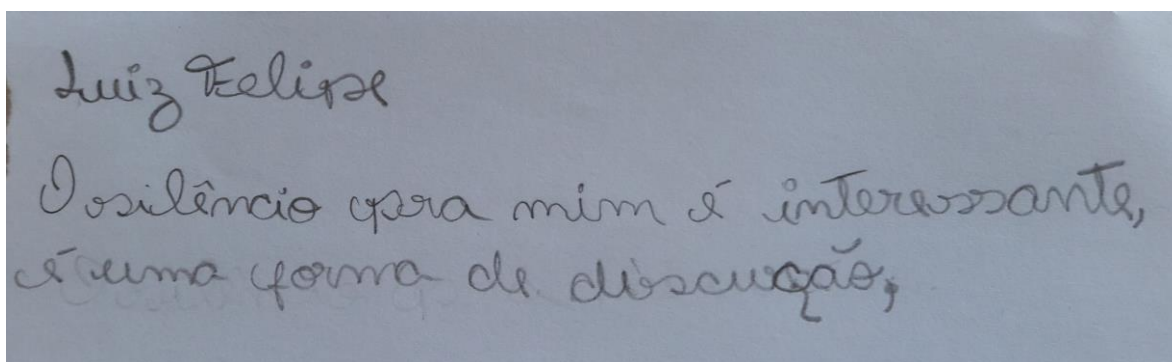 Luiz Felipe
O silêncio para mim é interessante,
é uma forma de discução,